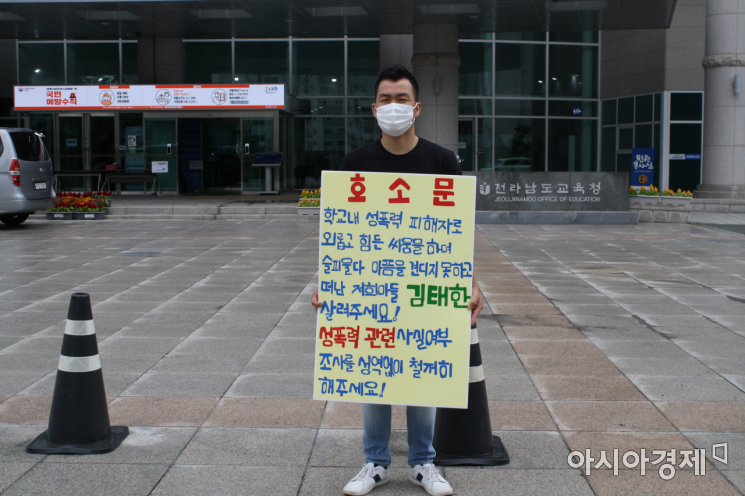 국민
예방수칙
호소문
학교내 성폭력 피해자로
외롭고 힘든 싸움을 하며
슬피울다 아픔을 견디지 못하고
떠난 저희아들 김태한
살려주세요!
성폭력 관련 사실여부
조사를 성역없이 철저히
해주세요!
전라남도교육청
JEOLLANAMDO OFFICE OF EDUCATION
아시아경제